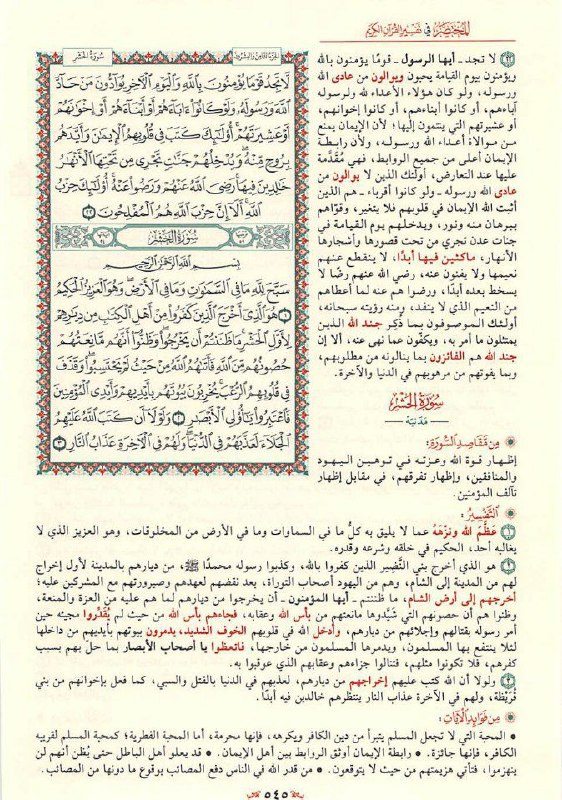 المختصر في تفسير القرآن الكريم
سورة الحشر
الجزء الثامن والعشرون
لَا تَجِدُ قَوْمًا يُؤْمِنُونَ بِاللَّهِ وَالْيَوْمِ الْآخِرِ يُوَادُّونَ مَنْ حَادَّ
اللَّهَ وَرَسُولَهُ وَلَوْ كَانُوا آبَاءَهُمْ أَوْ أَبْنَاءَهُمْ أَوْ إِخْوَانَهُمْ
أَوْ عَشِيرَتَهُمْ أُولَئِكَ كَتَبَ فِي قُلُوبِهِمُ الْإِيمَانَ وَأَيَّدَهُم
بِرُوحٍ مِّنْهُ وَيُدْخِلُهُمْ جَنَّاتٍ تَجْرِي مِن تَحْتِهَا الْأَنْهَارُ
خَالِدِينَ فِيهَا رَضِيَ اللَّهُ عَنْهُمْ وَرَضُوا عَنْهُ أُولَئِكَ حِزْبُ
اللَّهِ أَلَا إِنَّ حِزْبَ اللَّهِ هُمُ الْمُفْلِحُونَ ٢٢
سُورَةُ الْحَشْرِ
بِسْمِ اللَّهِ الرَّحْمَنِ الرَّحِيمِ
سَبَّحَ لِلَّهِ مَا فِي السَّمَاوَاتِ وَمَا فِي الْأَرْضِ وَهُوَ الْعَزِيزُ الْحَكِيمُ
١ هُوَ الَّذِي أَخْرَجَ الَّذِينَ كَفَرُوا مِنْ أَهْلِ الْكِتَابِ مِن دِيَارِهِمْ
لِأَوَّلِ الْحَشْرِ مَا ظَنَنتُمْ أَن يَخْرُجُوا وَظَنُّوا أَنَّهُم مَّانِعَتُهُمْ
حُصُونُهُم مِّنَ اللَّهِ فَأَتَاهُمُ اللَّهُ مِنْ حَيْثُ لَمْ يَحْتَسِبُوا وَقَذَفَ
فِي قُلُوبِهِمُ الرُّعْبَ يُخْرِبُونَ بُيُوتَهُم بِأَيْدِيهِمْ وَأَيْدِي الْمُؤْمِنِينَ
فَاعْتَبِرُوا يَا أُولِي الْأَبْصَارِ ٢ وَلَوْلَا أَن كَتَبَ اللَّهُ عَلَيْهِمُ
الْجَلَاءَ لَعَذَّبَهُمْ فِي الدُّنْيَا وَلَهُمْ فِي الْآخِرَةِ عَذَابُ النَّارِ ٣
٢٢ لا تجد - أيها الرسول - قومًا يؤمنون بالله
ويؤمنون بيوم القيامة يحبون ويوالون من عادى الله
ورسوله، ولو كان هؤلاء الأعداء لله ولرسوله
آباءهم، أو كانوا أبناءهم، أو كانوا إخوانهم،
أو عشيرتهم التي ينتمون إليها؛ لأن الإيمان يمنع
من موالاة أعداء الله ورسوله، ولأن رابطة
الإيمان أعلى من جميع الروابط، فهي مُقَدَّمة
عليها عند التعارض، أولئك الذين لا يوالون من
عادى الله ورسوله - ولو كانوا أقرباء - هم الذين
أثبت الله الإيمان في قلوبهم فلا يتغير، وقوّاهم
ببرهان منه ونور، ويدخلهم يوم القيامة في
جنات عدن تجري من تحت قصورها وأشجارها
الأنهار، ماكثين فيها أبدًا، لا ينقطع عنهم
نعيمها ولا يفنون عنه، رضي الله عنهم رضًا لا
يسخط بعده أبدًا، ورضوا هم عنه لما أعطاهم
من النعيم الذي لا ينفد، ومنه رؤيته سبحانه،
أولئك الموصوفون بما ذُكِر جند الله الذين
يمتثلون ما أمر به، ويكفّون عما نهى عنه، ألا إن
جند الله هم الفائزون بما ينالونه من مطلوبهم،
وبما يفوتهم من مرهوبهم في الدنيا والآخرة.
سُورَةُ الحَشْرِ
مَدَنيّة
مِن مَّقَاصِدِ السُّورَةِ:
إظهار قوة الله وعزته في توهين اليهود
والمنافقين، وإظهار تفرقهم، في مقابل إظهار
تآلف المؤمنين.
التَّفْسِيرُ:
١ عَظَّمَ اللهَ ونزّهَهُ عما لا يليق به كلُّ ما في السماوات وما في الأرض من المخلوقات، وهو العزيز الذي لا
يغالبه أحد، الحكيم في خلقه وشرعه وقدره.
٢ هو الذي أخرج بني النَّضِير الذين كفروا بالله، وكذبوا رسوله محمدًا ﷺ، من ديارهم بالمدينة لأول إخراج
لهم من المدينة إلى الشام، وهم من اليهود أصحاب التوراة، بعد نقضهم لعهدهم وصيرورتهم مع المشركين عليه؛
أخرجهم إلى أرض الشام، ما ظننتم - أيها المؤمنون - أن يخرجوا من ديارهم لما هم عليه من العزة والمنعة،
وظنوا هم أن حصونهم التي شَيَّدوها مانعتهم من بأس الله وعقابه، فجاءهم بأس الله من حيث لم يُقَدِّروا مجيئه حين
أمر رسوله بقتالهم وإجلائهم من ديارهم، وأدخل الله في قلوبهم الخوف الشديد، يدمرون بيوتهم بأيديهم من داخلها
لئلا ينتفع بها المسلمون، ويدمرها المسلمون من خارجها، فاتعظوا يا أصحاب الأبصار بما حلّ بهم بسبب
كفرهم، فلا تكونوا مثلهم، فتنالوا جزاءهم وعقابهم الذي عوقبوا به.
٣ ولولا أن الله كتب عليهم إخراجهم من ديارهم، لعذبهم في الدنيا بالقتل والسبي، كما فعل بإخوانهم من بني
قُرَيْظَة، ولهم في الآخرة عذاب النار ينتظرهم خالدين فيه أبدًا.
مِن فَوَائِدِ الآيَاتِ:
• المحبة التي لا تجعل المسلم يتبرأ من دين الكافر ويكرهه، فإنها محرمة، أما المحبة الفطرية؛ كمحبة المسلم لقريبه
الكافر، فإنها جائزة. • رابطة الإيمان أوثق الروابط بين أهل الإيمان. • قد يعلو أهل الباطل حتى يُظن أنهم لن
ينهزموا، فتأتي هزيمتهم من حيث لا يتوقعون. • من قدر الله في الناس دفع المصائب بوقوع ما دونها من المصائب.
٥٤٥